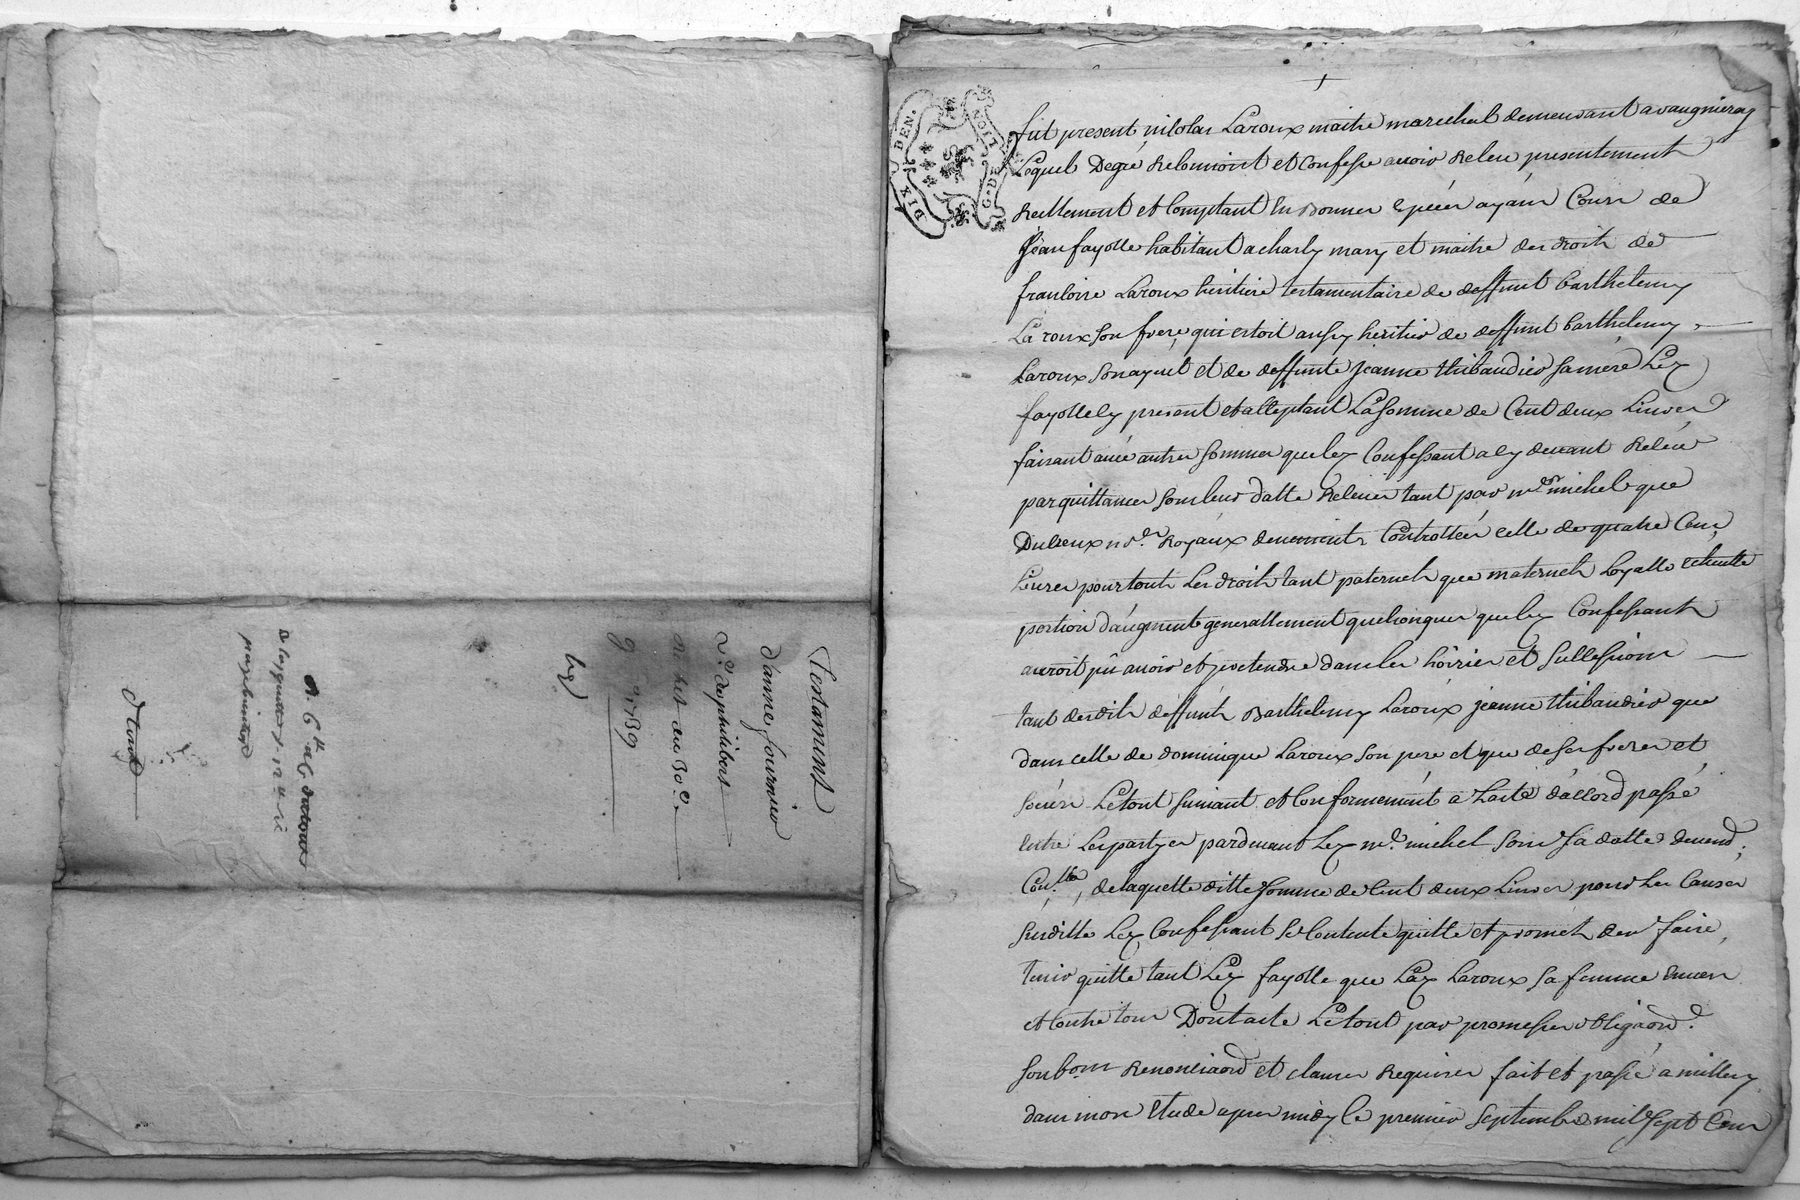 Testament
d'anne fournier
v.e de philibert
du 30.e
9 1739
A. 6.tt
DIX DEN.
G. DE LION
fut present nicolas Laroux maitre marechal demeurant a vaugneray
Lequel Degré reconnoit et confesse avoir receu presentement
Reellement et Comptant En Bonnes Especes ayant Cours de
Jean fayolle habitant a charly mary et maitre des droits de
francoise Laroux heritiere testamentaire de deffunt barthelemy
Laroux son frere, qui estoit aussy heritier de deffunt barthelemy
Laroux son ayeul et de deffunte jeanne thibaudier sa mere Led.
fayolle cy present et acceptant La somme de Cent deux Livres
faisant avec autres sommes que led. Confessant a cy devant Receüe
par quittances sous leur datte Receües tant par m.e michel que
Dulieux no.res Royaux deuement Controllées celle de quatre Cens
Livres pour tous Les droits tant paternels que maternels Loyalle echeutte
portion d'augment generallement quelconques que led. Confessant
auroit pû avoir et pretendre dans les hoiries et successions
tant desdits deffunts Barthelemy Laroux jeanne thibaudier que
dans celle de dominique Laroux son pere et que de ses freres et
soeurs Le tout suivant et Conformement a L'acte d'accord passé
Entre Les partyes pardevant Led. m.e michel sous sa datte deuem.t
Con.llé, de laquelle ditte somme de Cent deux Livres pour Les Causes
susditte Led. Confessant se Contente quitte et promet d'en faire
tenir quitte tant Led. fayolle que Lad. Laroux sa femme Envers
et Contre tous Dont acte Le tout par promesses obliga.on
soubmi.on Renonciaon et clauses Requises fait et passé a millery
dans mon Etude apres midy le premier septembre mil sept Cens